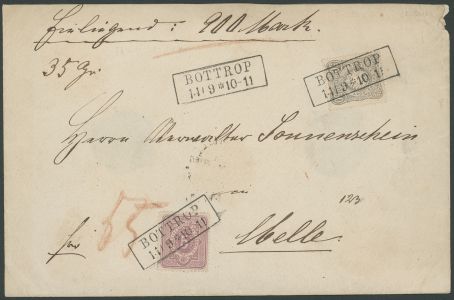 Einliegend: 900 Mark.
35 Gr.
BOTTROP
14 9 * 10-11
BOTTROP
14 9 * 10-11
Herrn Verwalter Sonnenschein
in
123
55
frei
Melle.
BOTTROP
14 9 * 10-11